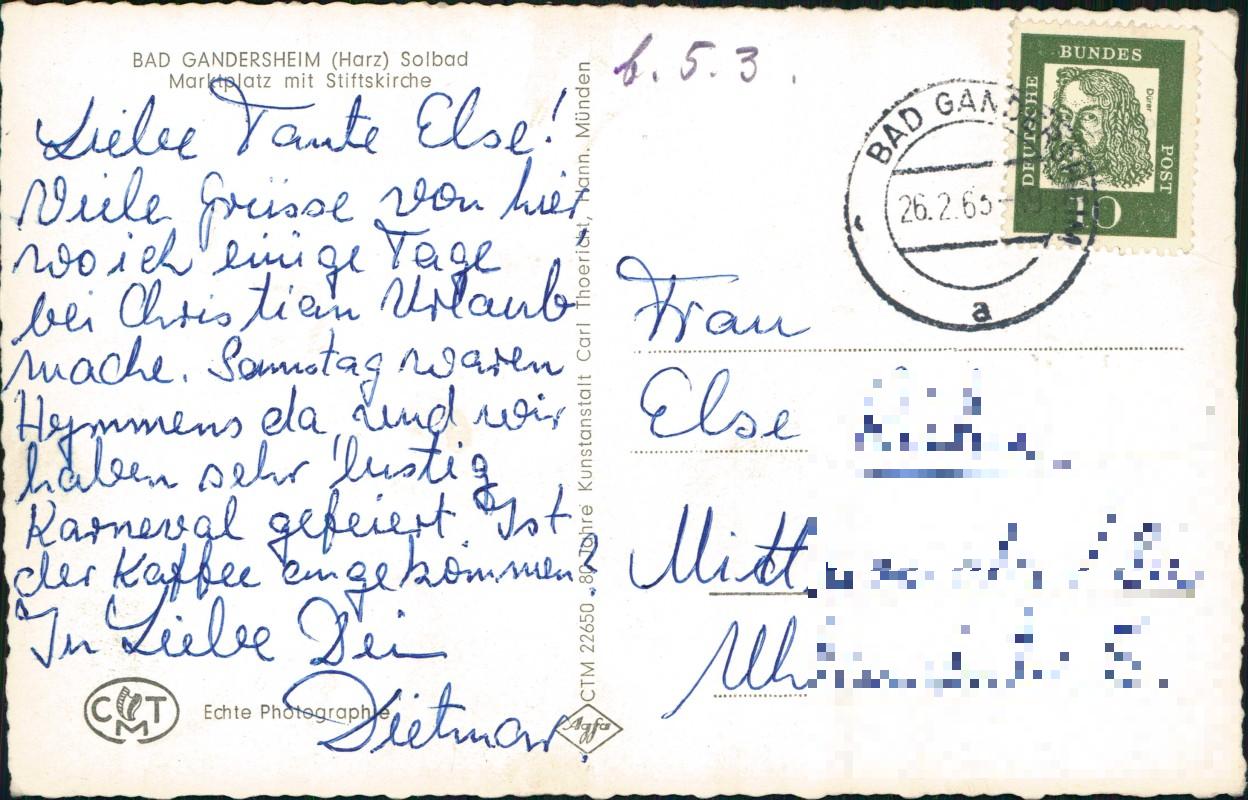 BAD GANDERSHEIM (Harz) Solbad
Marktplatz mit Stiftskirche
Liebe Tante Else!
Viele Grüsse von hier
wo ich einige Tage
bei Christian Urlaub
mache. Samstag waren
Heymmens da, und wir
haben sehr lustig
Karneval gefeiert. Ist
der Kaffee angekommen?
In Liebe Dein
Dietmar
CMT
Echte Photographie
Agfa
CTM 22650 . 80 Jahre Kunstanstalt Carl Thoericht, Hann. Münden
b. 5. 3.
BAD GANDERSHEIM
26.2.63
a
DEUTSCHE
BUNDES
POST
Dürer
10
Frau
Else
Mitt